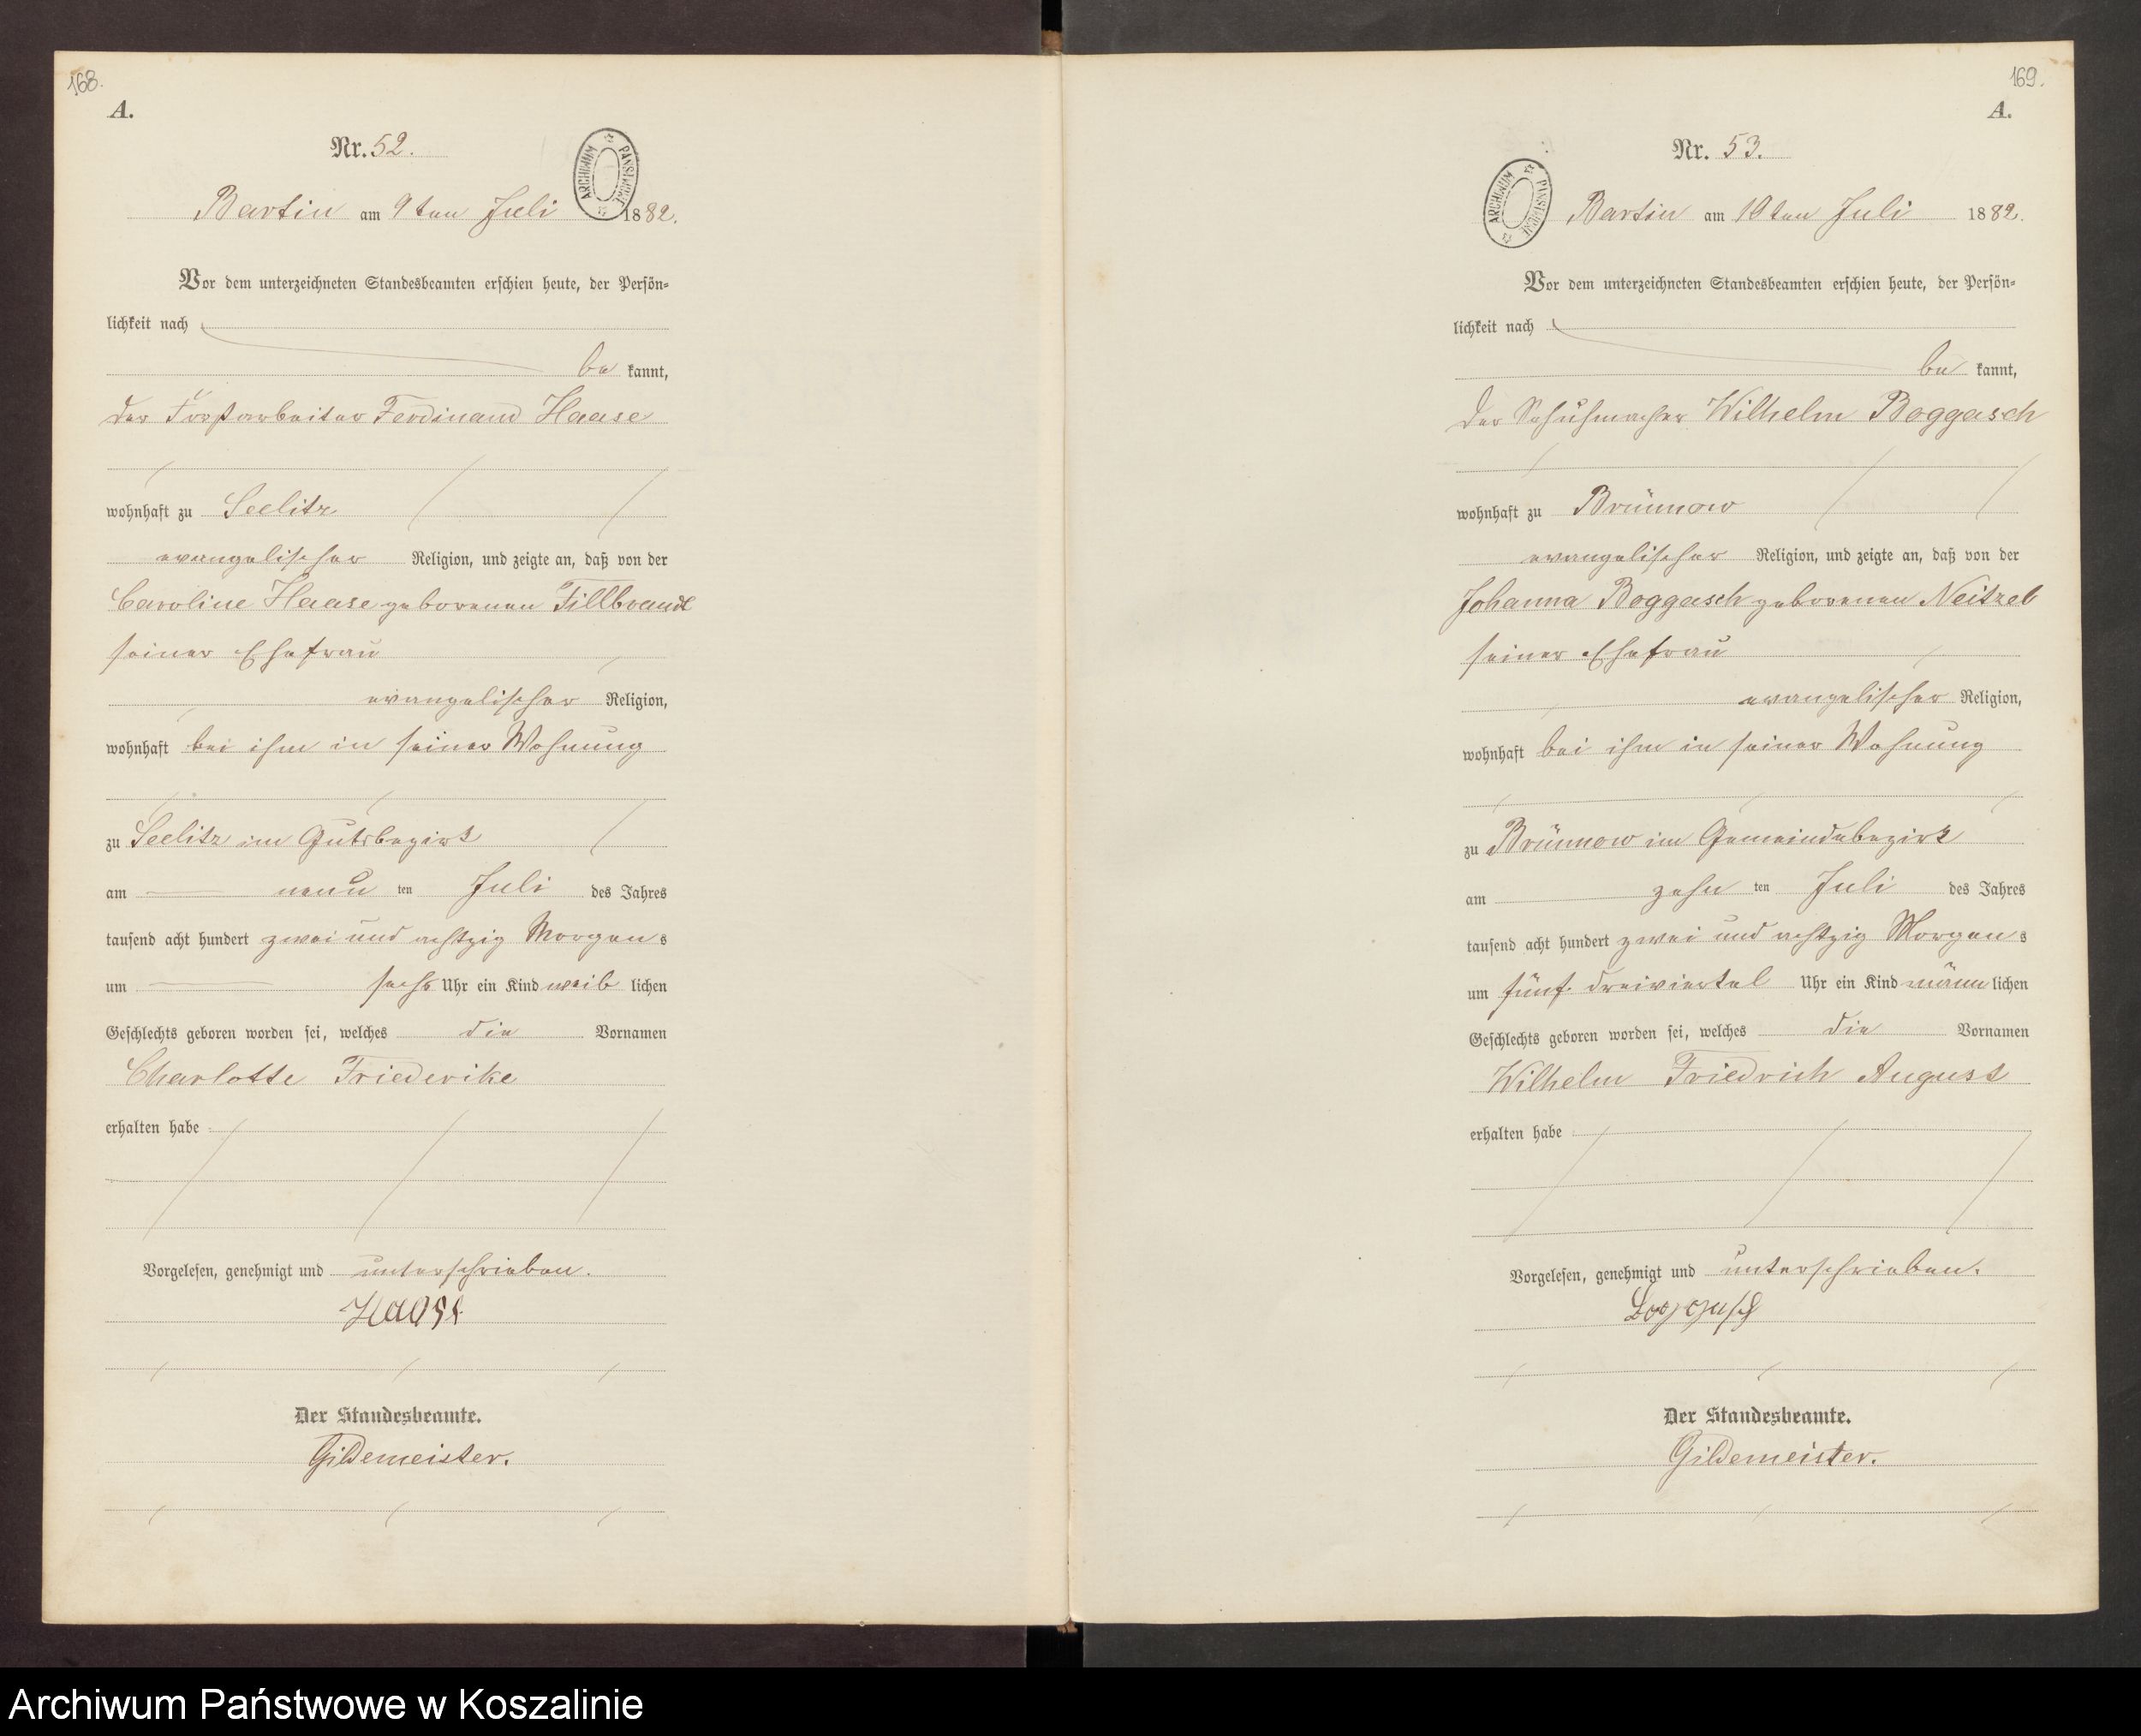 168.
A.
Nr. 52.
ARCHIWUM PAŃSTWOWE
Bartin am 9ten Juli 1882.
Vor dem unterzeichneten Standesbeamten erschien heute, der Persön-
lichkeit nach
be kannt,
der Forstarbeiter Ferdinand Haase
wohnhaft zu Seelitz
evangelischer Religion, und zeigte an, daß von der
Caroline Haase geborenen Fillbrandt
seiner Ehefrau
evangelischer Religion,
wohnhaft bei ihm in seiner Wohnung
zu Seelitz im Gutsbezirk
am neun ten Juli des Jahres
tausend acht hundert zwei und achtzig Morgens
um sechs Uhr ein Kind weib lichen
Geschlechts geboren worden sei, welches die Vornamen
Charlotte Friederike
erhalten habe
Vorgelesen, genehmigt und unterschrieben.
Haase
Der Standesbeamte.
Gildemeister.
169.
A.
Nr. 53.
ARCHIWUM PAŃSTWOWE
Bartin am 10ten Juli 1882.
Vor dem unterzeichneten Standesbeamten erschien heute, der Persön-
lichkeit nach
be kannt,
der Schuhmacher Wilhelm Boggasch
wohnhaft zu Brünnow
evangelischer Religion, und zeigte an, daß von der
Johanna Boggasch geborenen Neitzel
seiner Ehefrau
evangelischer Religion,
wohnhaft bei ihm in seiner Wohnung
zu Brünnow im Gemeindebezirk
am zehn ten Juli des Jahres
tausend acht hundert zwei und achtzig Morgens
um fünf dreiviertel Uhr ein Kind männ lichen
Geschlechts geboren worden sei, welches die Vornamen
Wilhelm Friedrich August
erhalten habe
Vorgelesen, genehmigt und unterschrieben.
Der Standesbeamte.
Gildemeister.
Archiwum Państwowe w Koszalinie